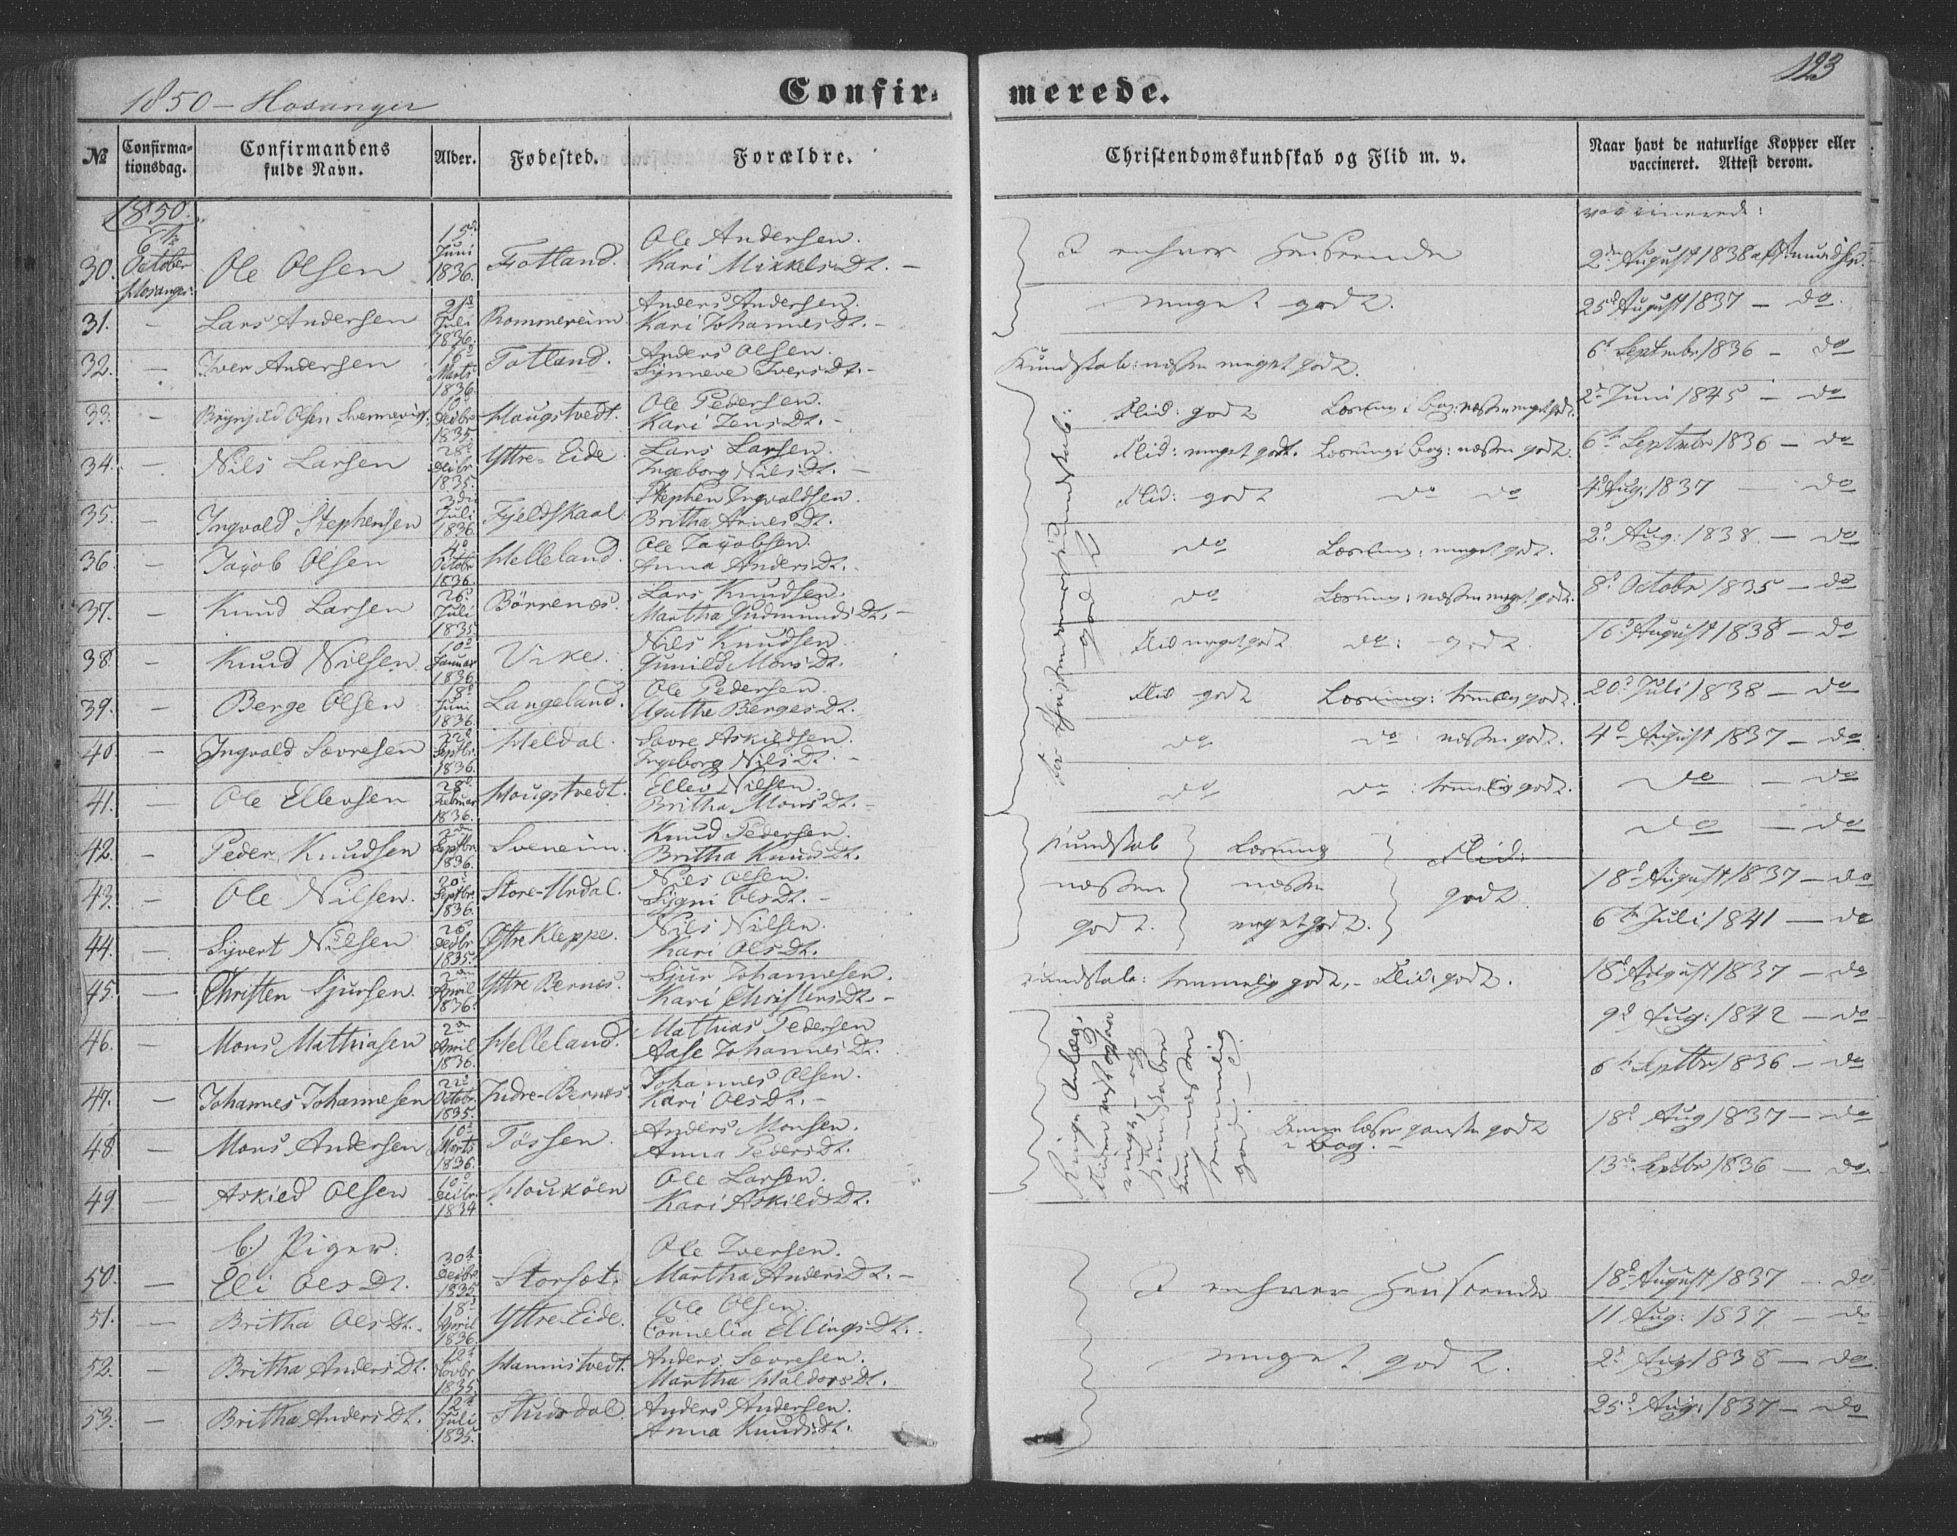 123
1850 - Hosanger
Confir= merede.
№ Confirma=tionsdag. Confirmandens fulde Navn. Alder. Fødested. Forældre. Christendomskundskab og Flid m. v. Naar havt de naturlige Kopper eller vaccineret. Attest derom.
1850. vaccinerede:
30. 6te October Hosanger Ole Olsen 15d Juni 1836. Fotland. Ole Andersen. Kari Mikkels Dt. - I enhver Henseende 2den August 1838 af
31. - Lars Andersen 21d Juli 1836. Rommereim Anders Andersen. Kari Johannes Dt. - meget godt. 25d August 1837 - do.
32. - Iver Andersen 16d Marts 1836. Fotland. Anders Olsen. Synneve Ivers Dt. - Kundskab: næsten meget godt. 6t Septembr 1836 - do
33. - Brynjild Olsen 10d Decbr 1835. Hougstvedt. Ole Pedersen. Kari Jens Dt. - Flid: godt Læsning i Bog: næsten meget godt. 2d Juni 1845 - do
34. - Nils Larsen 28d Decbr 1835. Yttre-Eide. Lars Larsen. Ingeborg Nils Dt. - Flid: meget godt. Læsning i Bog: næsten godt. 6te Septembr 1836 - do
35. - Ingvald Stephensen 3die Juli 1836. Fjeldskaal Stephen Ingvaldsen. Britha Arnes Dt. Flid: godt do do 4d Aug: 1837 - do
36. - Jacob Olsen 4d Octobr 1836. Helleland. Ole Jacobsen. Anna Anders Dt. - do Læsning: meget godt. 2d Aug: 1838. - do
37. - Knud Larsen 26d Juli 1835. Börrenæs. Lars Knudsen. Martha Gudmunds Dt. - do Læsning: næsten meget godt. 8d Octobr 1835 - do
38. - Knud Nilsen 10d Januar 1836. Vike. Nils Knudsen. Gunild Mons Dt. Flid meget godt do: - godt 16d August 1838 - do
39. - Berge Olsen 18d Juni 1836. Langeland. Ole Pedersen. Agathe Berges Dt. Flid godt Læsning: temmelig godt. 20d Juli 1838 - do
40. - Ingvald Sævresen 22d Septbr. 1836. Heldal. Sævre Askildsen. Ingeborg Nils Dt. - do do: næsten godt. 4d August 1837 - do
41. - Ole Ellevsen 28d Februar 1836. Hougstvedt. Ellev Nilsen. Britha Mons Dt. - do do: temmelig godt. do - do
Kundskab: godt
42. - Peder Knudsen 2den Septbr 1836. Sveneim. Knud Pedersen. Britha Knuds Dt. do - do
43. - Ole Nilsen. 20d Septbr. 1836. Store-Urdal. Nils Olsen. Sygni Ols Dt. - 18d August 1837 - do
44. - Syvert Nilsen 26d Decbr 1835. Yttre Kleppe. Nils Nilsen. Kari Ols Dt. 6te Juli 1841 - do
Kundskab næsten godt. Læsning næsten meget godt. Flid: godt.
45. - Christen Sjursen. 2den April 1836. Yttre Bernæs. Sjur Johannesen. Kari Christens Dt. - Kundskab: temmelig godt, - Flid: godt. 18d August 1837 - do
46. - Mons Mathiasen 2den April 1836. Helleland. Mathias Pedersen Aase Johannes Dt. 9d Aug: 1842 - do
47. - Johannes Johannesen 22d Octobr. 1835. Indre-Bernæs. Johannes Olsen. Kari Ols Dt. - 6te Septbr 1836 - do
48. - Mons Andersen 10d Marts 1836. Tössen. Anders Monsen. Anna Peders Dt. læser ganske godt i Bog. - 18d Aug 1837 - do
49. - Askild Olsen 10d Decbr. 1834 Houköen Ole Larsen. Kari Askilds Dt. 13de Septbr 1836 - do.
Ringe Anlæg, Kundskaben kun næsten temmelig godt.
b.) Piger.
50. - Eli Ols Dt. 30te Decbr 1835. Storset. Ole Iversen. Martha Anders Dt. - I enhver Henseende 18d August 1837 - do
51. - Britha Ols Dt. 18d April 1836. Yttre Eide. Ole Olsen. Cornelia Ellings Dt. 11 Aug: 1837 - do
52. - Britha Anders Dt. 12d Novbr 1835. Hannistvedt. Anders Sævresen. Martha Haldors Dt. meget godt. 2d Aug 1838 - do
53. - Britha Anders Dt. 12d Juli 1835. Stusdal. Anders Andersen. Anna Knuds Dt. 25d Aug: 1837 - do